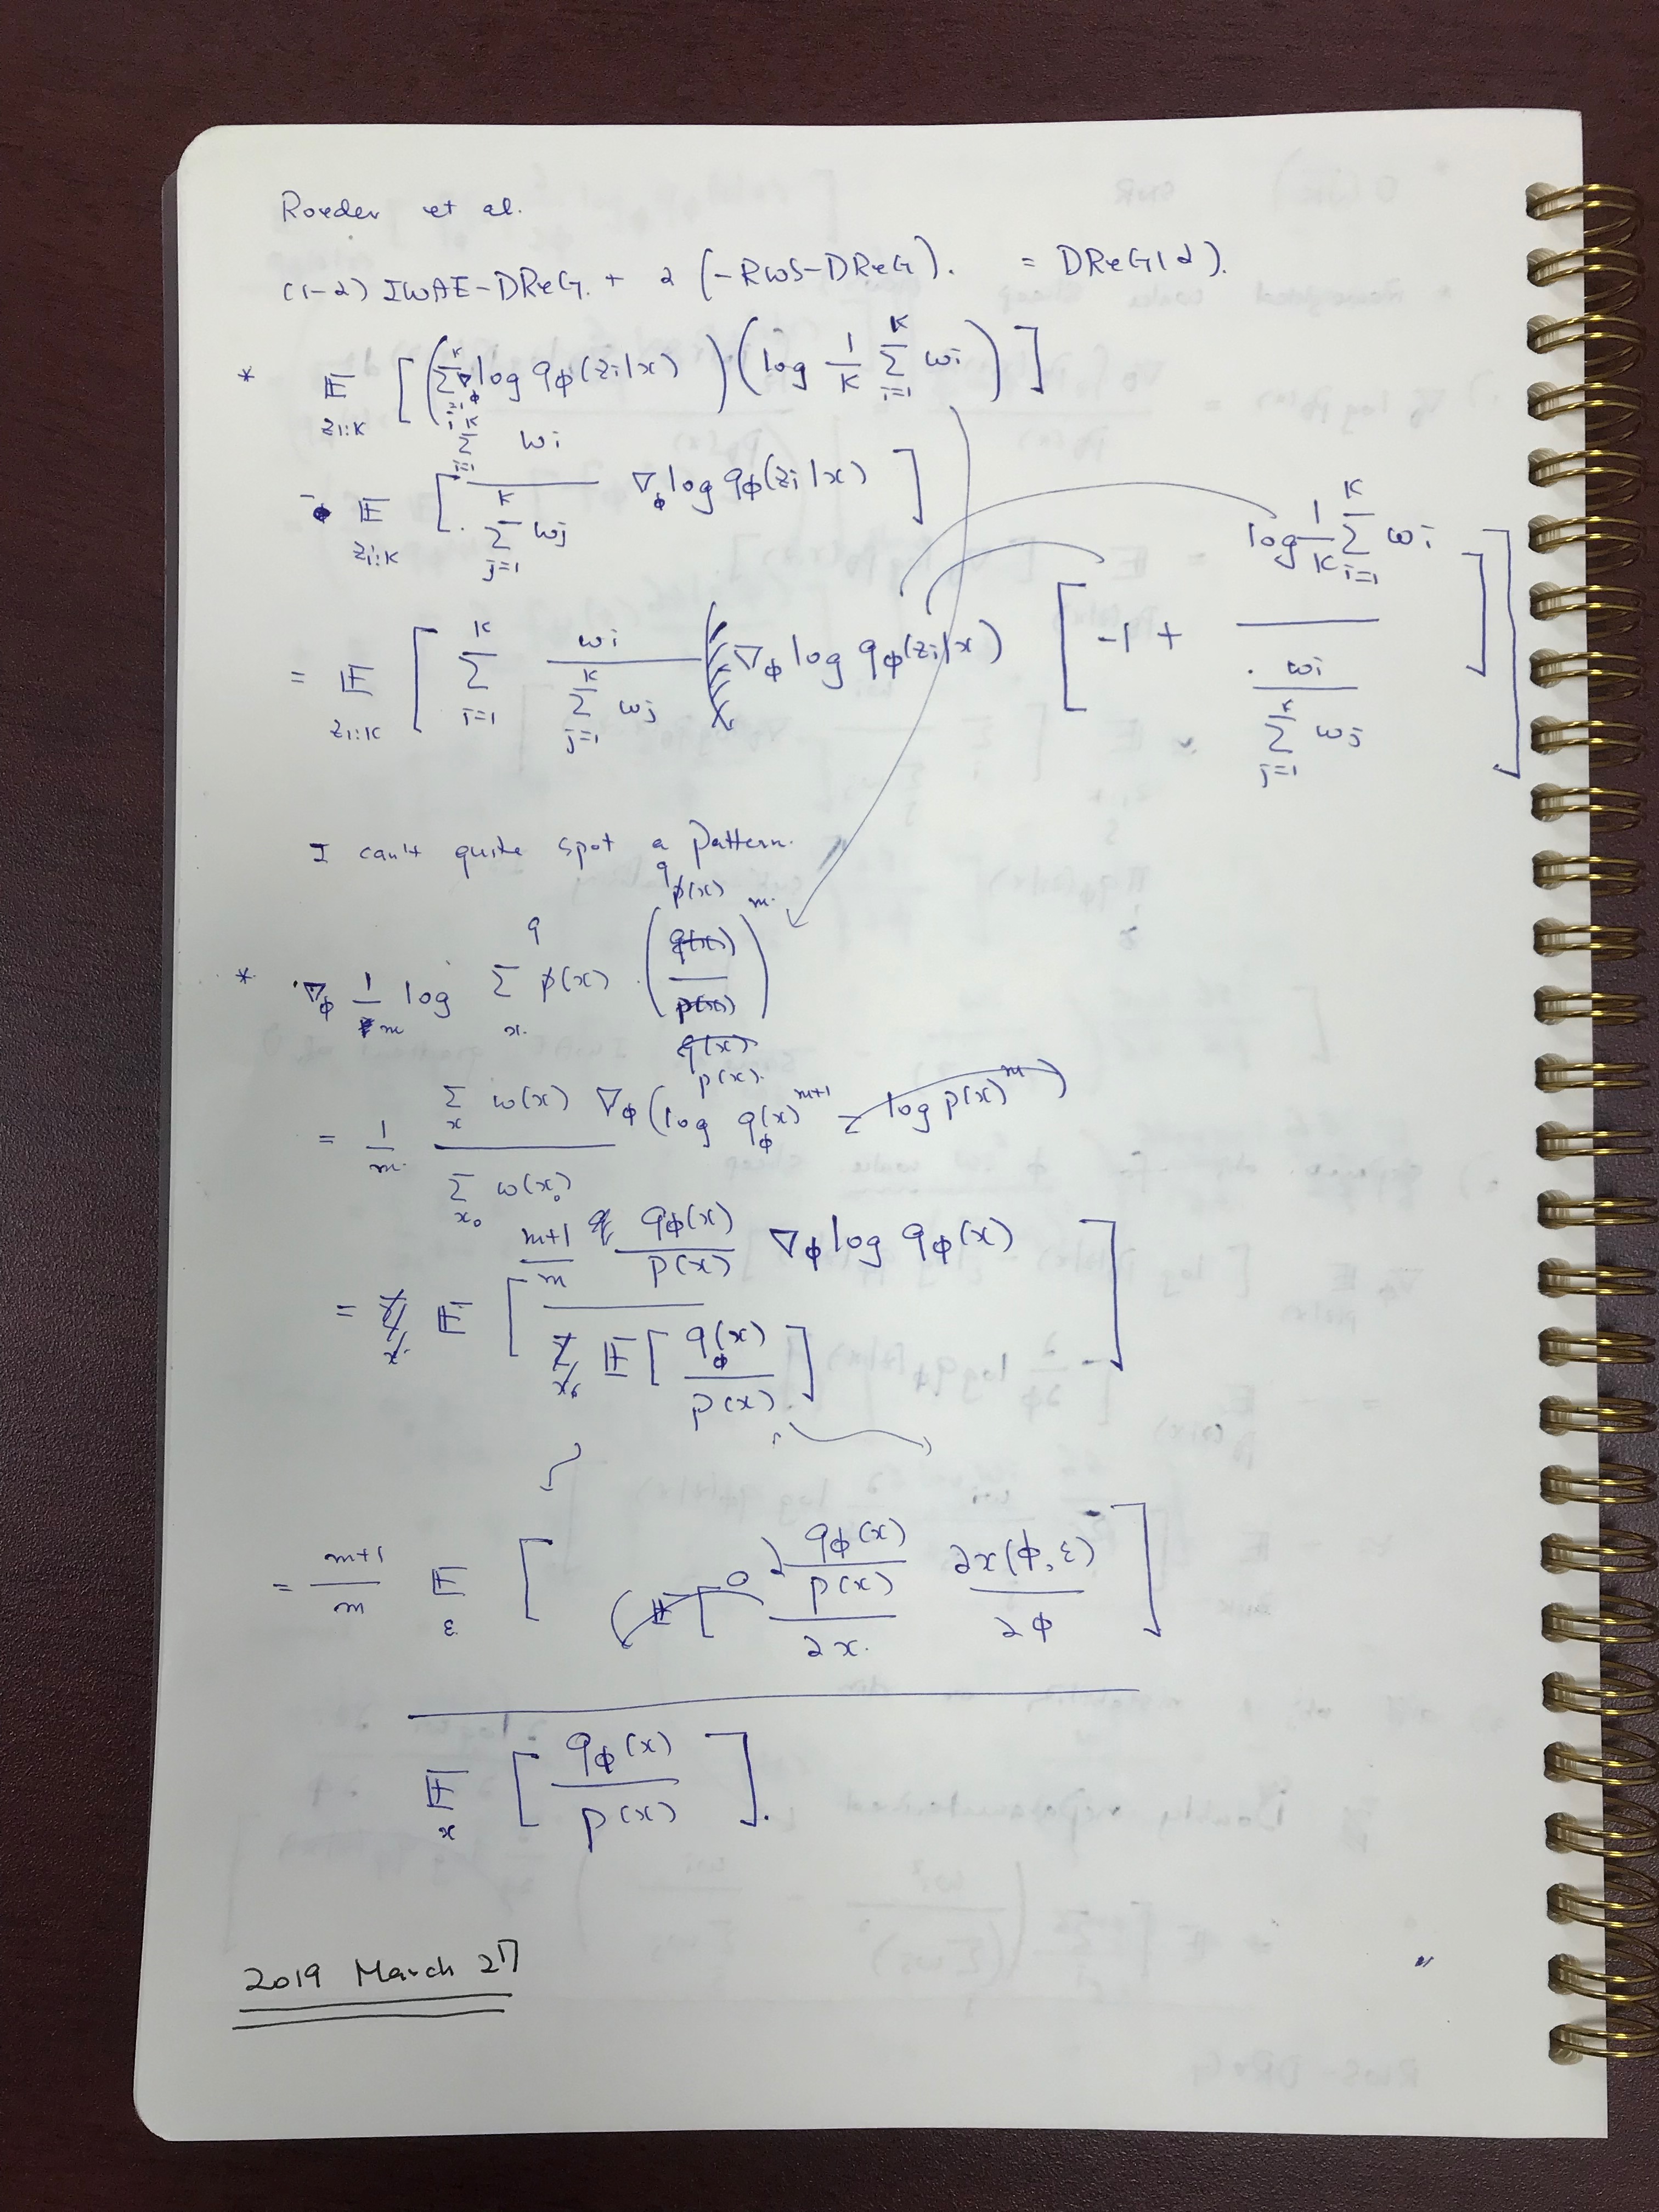 Roeder et al.
(1-α) IWAE-DReG. + α (-RWS-DReG). = DReG(α).
* E_{z_{1:K}} [ ( Σ_{i=1}^{K} ∇_ϕ log q_ϕ(z_i|x) ) ( log 1/K Σ_{i=1}^{K} w_i ) ]
- E_{z_{1:K}} [ Σ_{i=1}^{K} w_i / Σ_{j=1}^{K} w_j ∇_ϕ log q_ϕ(z_i|x) ]
= E_{z_{1:K}} [ Σ_{i=1}^{K} w_i / Σ_{j=1}^{K} w_j ∇_ϕ log q_ϕ(z_i|x) [ -1 + log 1/K Σ_{i=1}^{K} w_i / ( w_i / Σ_{j=1}^{K} w_j ) ] ]
I can't quite spot a pattern.
* ∇_ϕ 1/m log Σ_x q(x) · ( q(x) / p(x) )^m
= 1/m Σ_x w(x) ∇_ϕ ( log q_ϕ(x)^{m+1} - log p(x)^m ) / Σ_{x_0} w(x_0)
= E [ m+1/m q_ϕ(x)/p(x) ∇_ϕ log q_ϕ(x) / E [ q_ϕ(x)/p(x) ] ]
= m+1/m E_ε [ ∂ q_ϕ(x)/p(x) / ∂x ∂x(ϕ,ε)/∂ϕ ]
E_x [ q_ϕ(x) / p(x) ].
2019 March 27